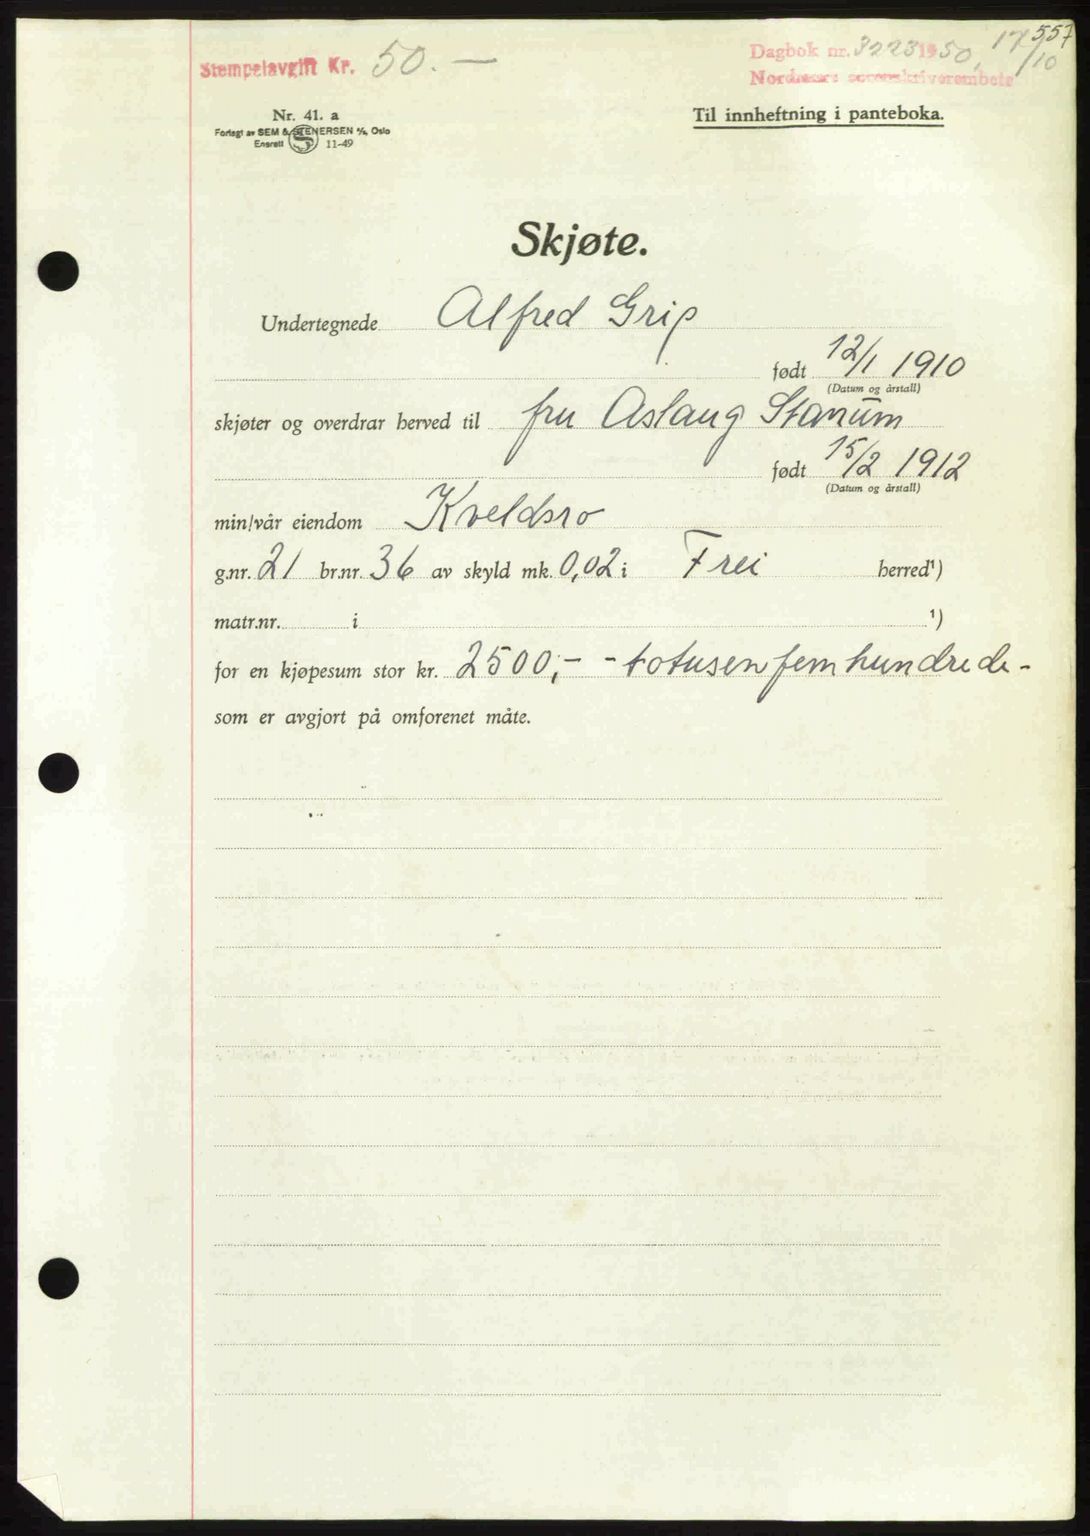 557
Stempelavgift Kr. 50.—
Dagbok nr. 3223 1950, 17/10
Nordmøre sorenskriverembete
Nr. 41. a
Forlagt av SEM & STENERSEN A/S, Oslo
Enerett 11-49
Til innheftning i panteboka.
Skjøte.
Undertegnede Alfred Grip
født 12/1 1910
(Datum og årstall)
skjøter og overdrar herved til fru Aslaug Stanum
født 15/2 1912
(Datum og årstall)
min/vår eiendom Kveldsro
g.nr. 21 br.nr. 36 av skyld mk. 0,02 i Frei herred¹)
matr.nr. i ¹)
for en kjøpesum stor kr. 2500,- - totusenfemhundrede -
som er avgjort på omforenet måte.